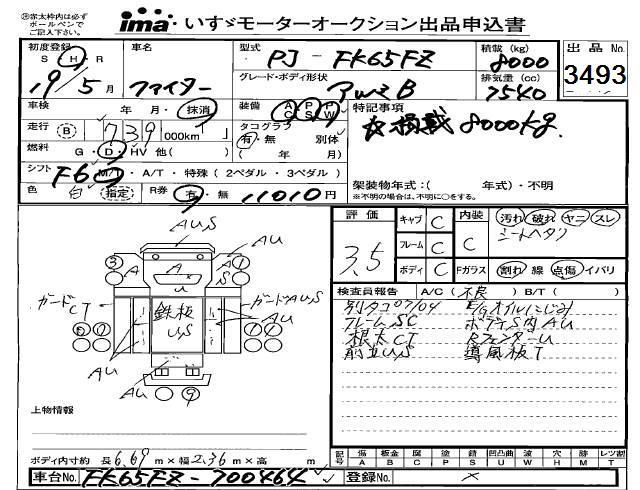 ㊟赤太枠内は必ず
ボールペンで
ご記入下さい。
ima いすゞモーターオークション出品申込書
初度登録 S H R
19年5月
車名 ファイター
型式 PJ-FK65FZ
積載(kg) 8000
出品No. 3493
グレード・ボディ形状 アルミB
排気量(cc) 7540
車検 年 月・抹消
装備 AC PS PW
特記事項
☆積載8000kg.
走行 B 739 000km
タコグラフ 有・無 別体
( 年 月)
燃料 G・D・HV 他( )
シフト F6 M/T・A/T・特殊(2ペダル・3ペダル)
架装物年式:( 年式)・不明
※不明の場合は、不明に○をする。
色 白 指定 R券 有・無 11010円
評価 3.5
キャブ C
フレーム C
ボディ C
内装 C
汚れ 破れ ヤニ スレ
シートヘタリ
Fガラス 割れ 線 点傷 イバリ
検査員報告 A/C(不良)B/T( )
別タコ07/04 E/Gオイルにじみ
フレームSC ボデーS内AU
根太CT RフェンダーU
前立U,S 導風板T
AUS
AU
AU
A
A
U
A
S
3
1
ガードCT
鉄板
U,S
ガードAUS
AU
AU
AU
9
上物情報
ボディ内寸約 長6.69m×幅2.36m×高 m
記号 傷A 板金B 腐C 塗P 錆S 凹凸曲U 波W 穴H 跡M レツ割T
車台No. FK65FZ-700464
登録No. ×